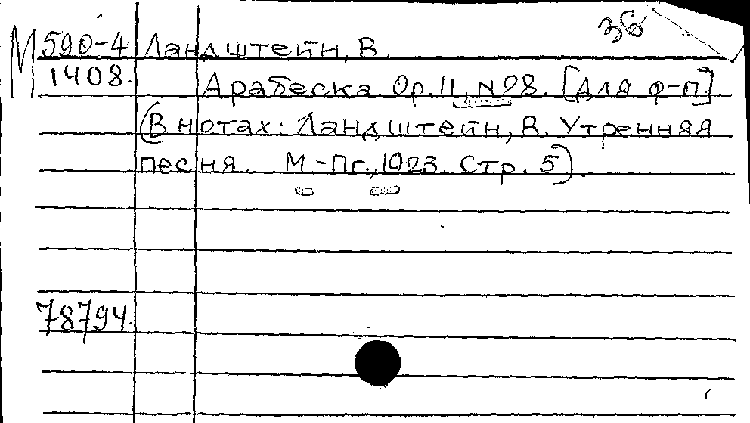 36
М 590-4 Ландштейн, В.
1408. Арабеска Op. 11, №8. [Для ф-п]
(В нотах: Ландштейн, В. Утренняя
песня. М.-Пг., 1923. Стр. 5).
78794